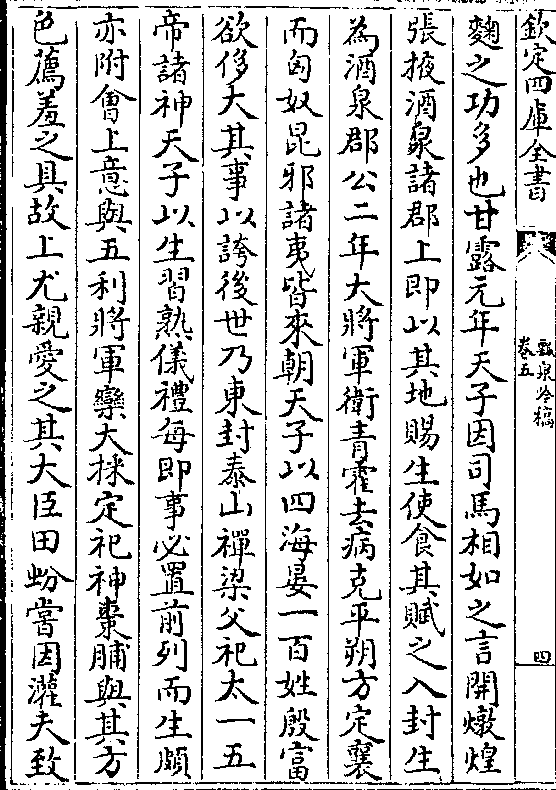 欽定四庫全書
瓢泉吟稿
卷五
四
麴之功多也甘露元年天子因司馬相如之言開燉煌
張掖酒泉諸郡上即以其地賜生使食其賦之入封生
為酒泉郡公二年大將軍衛青霍去病克平朔方定襄
而匈奴昆邪諸夷皆來朝天子以四海晏一百姓殷富
欲侈大其事以誇後世乃東封泰山禪梁父祀太一五
帝諸神天子以生習熟儀禮每即事必置前列而生頗
亦附會上意與五利將軍欒大採定祀神棗脯與其方
色薦羞之具故上尤親愛之其大臣田蚡嘗因灌夫致